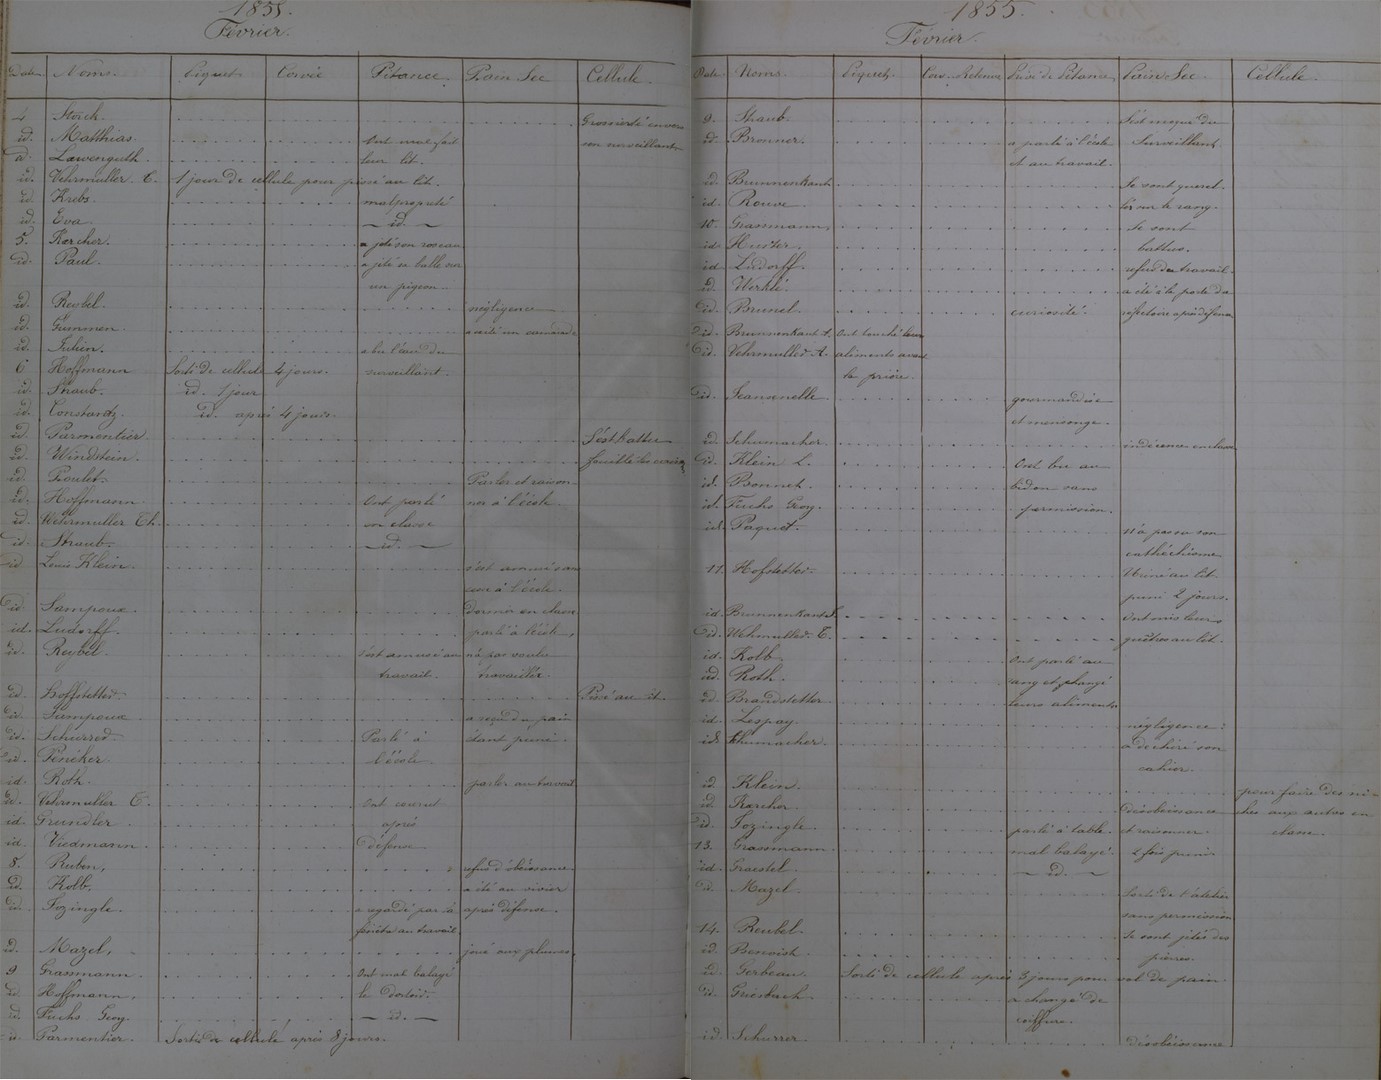 1855.
Février.
Date Noms. Piquet Corvée Pitance. Pain Sec Cellule.
4 Storck. Grossièreté envers
id. Matthias. Ont mal fait son surveillant
id. Lœwenguth. leur lit.
id. Vehrmuller. C. 1 jour de cellule pour pissé au lit.
id Krebs. malpropreté
id. Eva. — id. —
5. Karcher. a jeté son roseau
id. Paul. a jeté sa balle sur
un pigeon.
id. Reybel. négligence
id. Gummen.
id. Julien. a bu l'eau du
6 Hoffmann Sorti de cellule 4 jours. surveillant.
id. Straub. id. 1 jour
id. Constantz. id. après 4 jours.
id. Parmentier. S'est battu
id. Windstein.
id. Poulet. Parler et raison-
id. Hoffmann Ont parlé ner à l'école.
id. Wehrmuller Th. en classe
id. Straub. — id. —
id Louis Klein. s'est amusé au
à l'école.
id. Lampoux. Dormir en classe
id. Ludorff. parlé à l'école,
id. Reybel s'est amusé au n'a pas voulu
travail. travailler.
id. Hoffstetter Pissé au lit.
id. Lampoux a reçu du pain
id. Schurred. Parlé à étant puni.
id. Péncker. l'école.
id. Roth. parler au travail
id. Vehrmuller C. Ont couru
id. Grundler après
id. Viedmann. défense
8. Reuben, refus d'obéissance
id. Kolb. a été au vivier
id. Fozingle. a regardé par la après défense.
fenêtre au travail.
id. Mazel, joué aux plumes,
9 Grassmann. Ont mal balayé
id. Hoffmann, le Dortoir.
id. Fuchs Georg. — id. —
id. Parmentier. Sorti de cellule après 8 jours.
1855.
Février.
Date. Noms. Piquet. Cor. Retenue Privé de Pitance Pain Sec. Cellule.
9. Straub. S'est moqué du
id. Bronner. a parlé à l'école Surveillant
et au travail.
id. Brunnenkant Se sont querel-
id. Rouve. lés sur le rang.
10. Grassmann, Se sont
id. Huster. battus.
id. Ludorff. refus de travail.
id. Werlé. a été à la porte du
id. Brunel. curiosité. réfectoire après défense
id. Brunnenkant A. Ont touché leurs
id. Vehrmuller A. aliments avant
la prière.
id. Jeansenelle gourmandise
et mensonge.
id. Schumacher. indécence en classe
id. Klein L. Ont bu au
id. Bonnet. bidon sans
id. Fuchs Georg. permission.
id. Paquet. n'a pas su son
cathéchisme
11. Hofstetter. Uriné au lit.
puni 2 jours.
id. Brunnenkant J. Ont mis leurs
id. Wehrmuller. C. guêtres au lit.
id. Kolb Ont parlé au
id. Roth. rang et changé
id. Brandstetter leurs aliments
id. Lespay. négligence:
id. Schumacher. a déchiré son
cahier.
id Klein. pour faire des ni-
id Karcher Désobéissance ches aux autres en
id. Fozingle. parlé à table. et raisonner. classe.
13. Grassmann mal balayé. 2 fois puni.
id. Graestel. — id. —
id. Mazel Sorti de l'atelier
sans permission
14. Reubel. Se sont jetés des
id. Benoist pierres.
id. Gerbeau. Sorti de cellule après 3 jours pour vol de pain.
id. Griesbach. a changé de
coiffure.
id. Schurrer. désobéissance